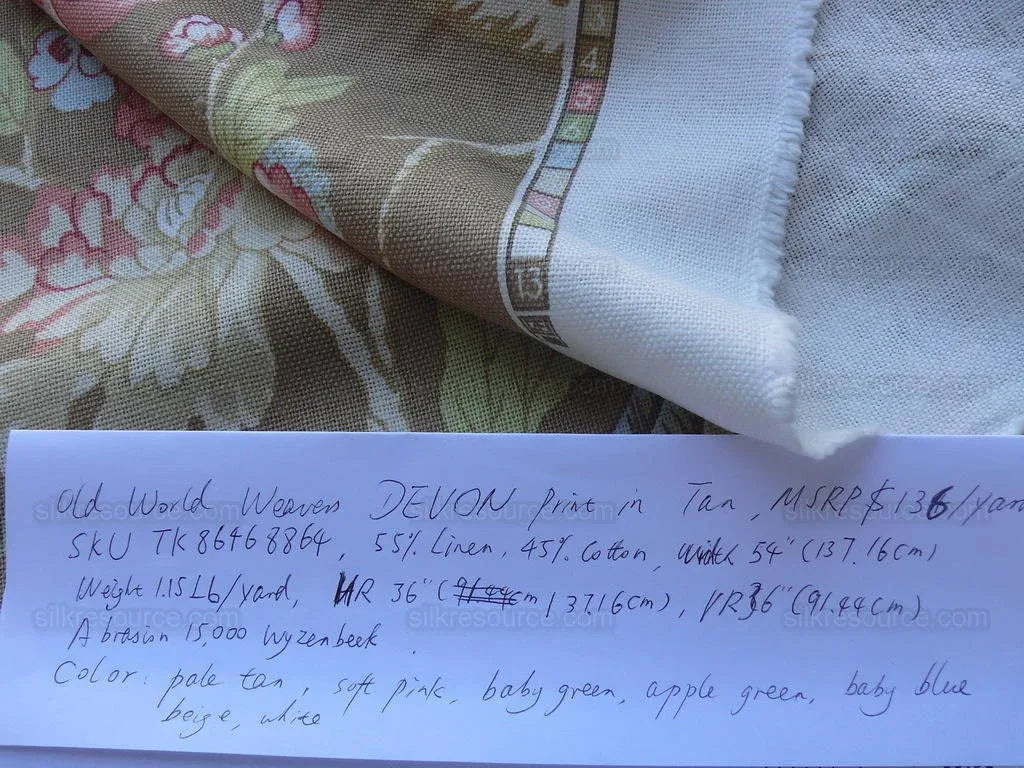 3
4
5
13
Old World Weavers DEVON Print in Tan, MSRP $136/yar
SKU TK86468864, 55% Linen, 45% Cotton, width 54" (137.16cm)
Weight 1.15Lb/yard, HR 36" (91.44cm 137.16cm), VR36" (91.44cm)
Abrasion 15,000 Wyzenbeek
Color: pale tan, soft pink, baby green, apple green, baby blue
beige, white
silkresource.com